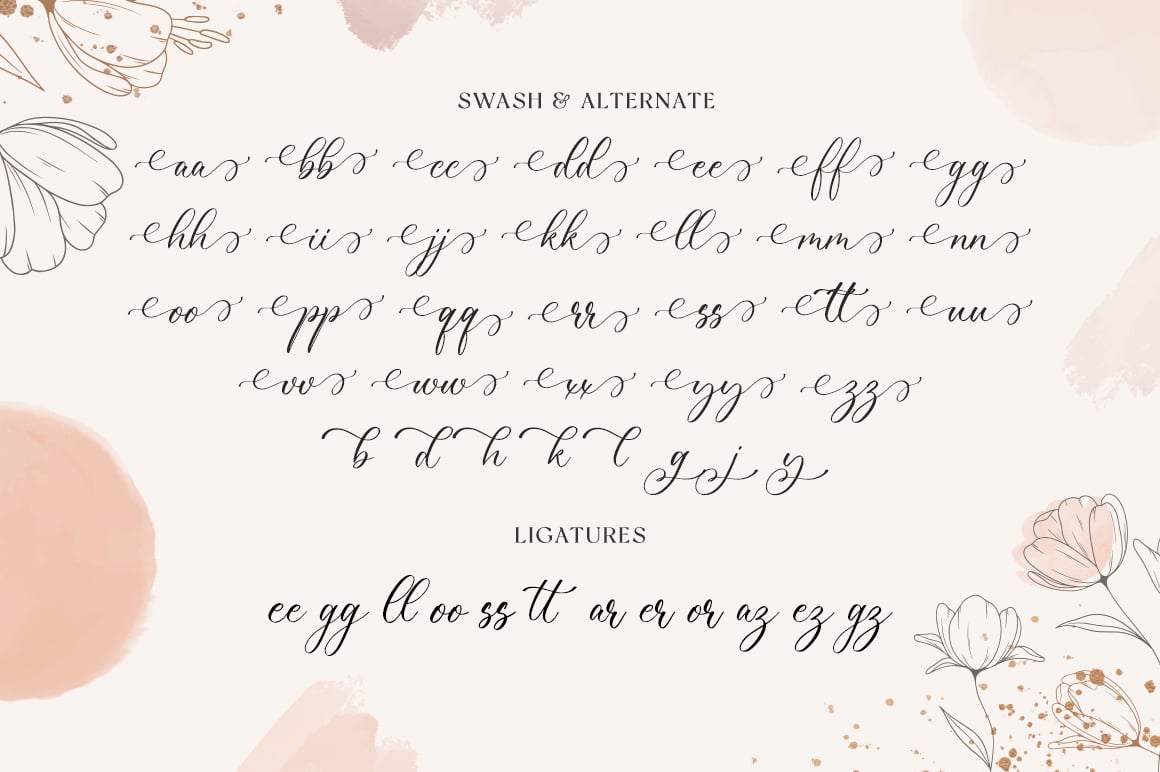 SWASH & ALTERNATE
aa bb cc dd ee ff gg
hh ii jj kk ll mm nn
oo pp qq rr ss tt uu
vv ww xx yy zz
b d h k l g j y
LIGATURES
ee gg ll oo ss tt ar er or az ez gz